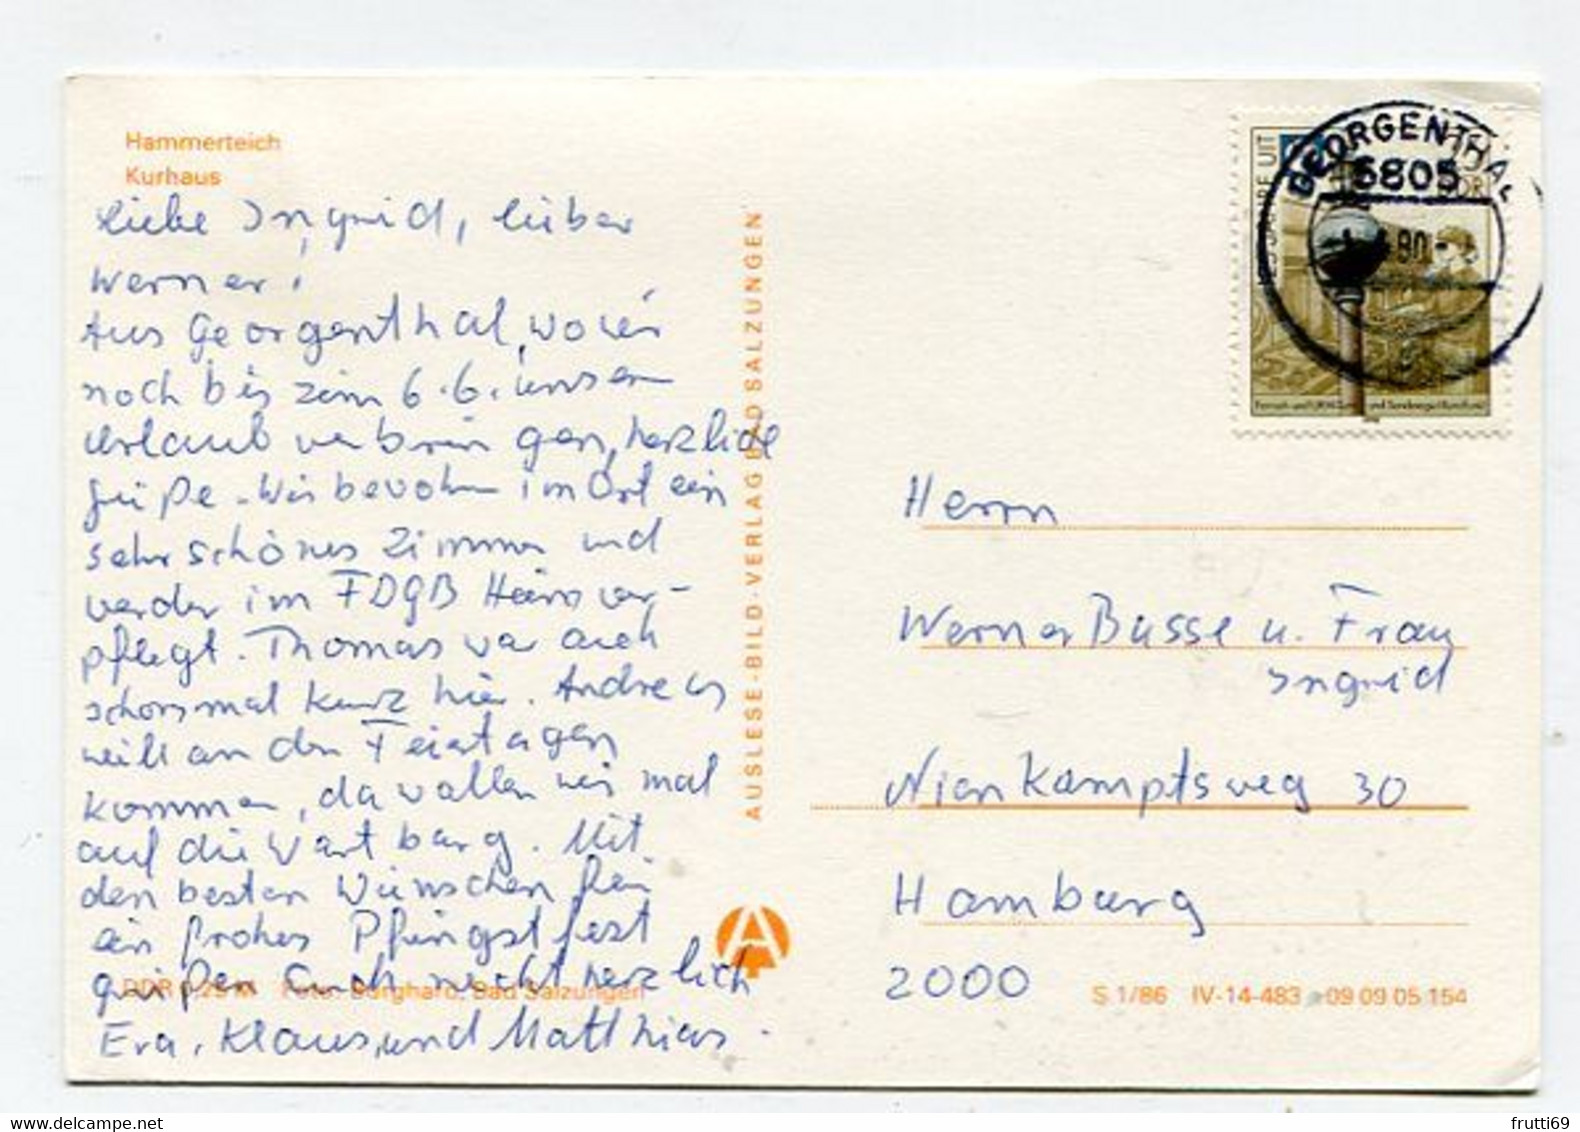 Hammerteich
Kurhaus
Liebe Ingrid, lieber
Werner,
Aus Georgenthal, wo wir
noch bis zum 6.6. unseren
Urlaub verbringen, herzliche
Grüße. Wir bewohnen im Ort ein
sehr schönes Zimmer und
werden im FDGB Heim ver-
pflegt. Thomas war auch
schonmal kurz hier. Andreas
will an den Feiertagen
kommen, da wollen wir mal
auf die Wartburg. Mit
den besten Wünschen für
ein frohes Pfingstfest
grüßen Euch recht herzlich
Eva, Klaus, und Matthias.
DDR 0,25 M Foto: Burghard, Bad Salzungen
AUSLESE-BILD-VERLAG BAD SALZUNGEN
GEORGENTHAL
5805
90
Herrn
Werner Busse u. Frau
Ingrid
Nienkamptsweg 30
Hamburg
2000
S 1/86 IV-14-483 09 09 05 154
frutti69
www.delcampe.net